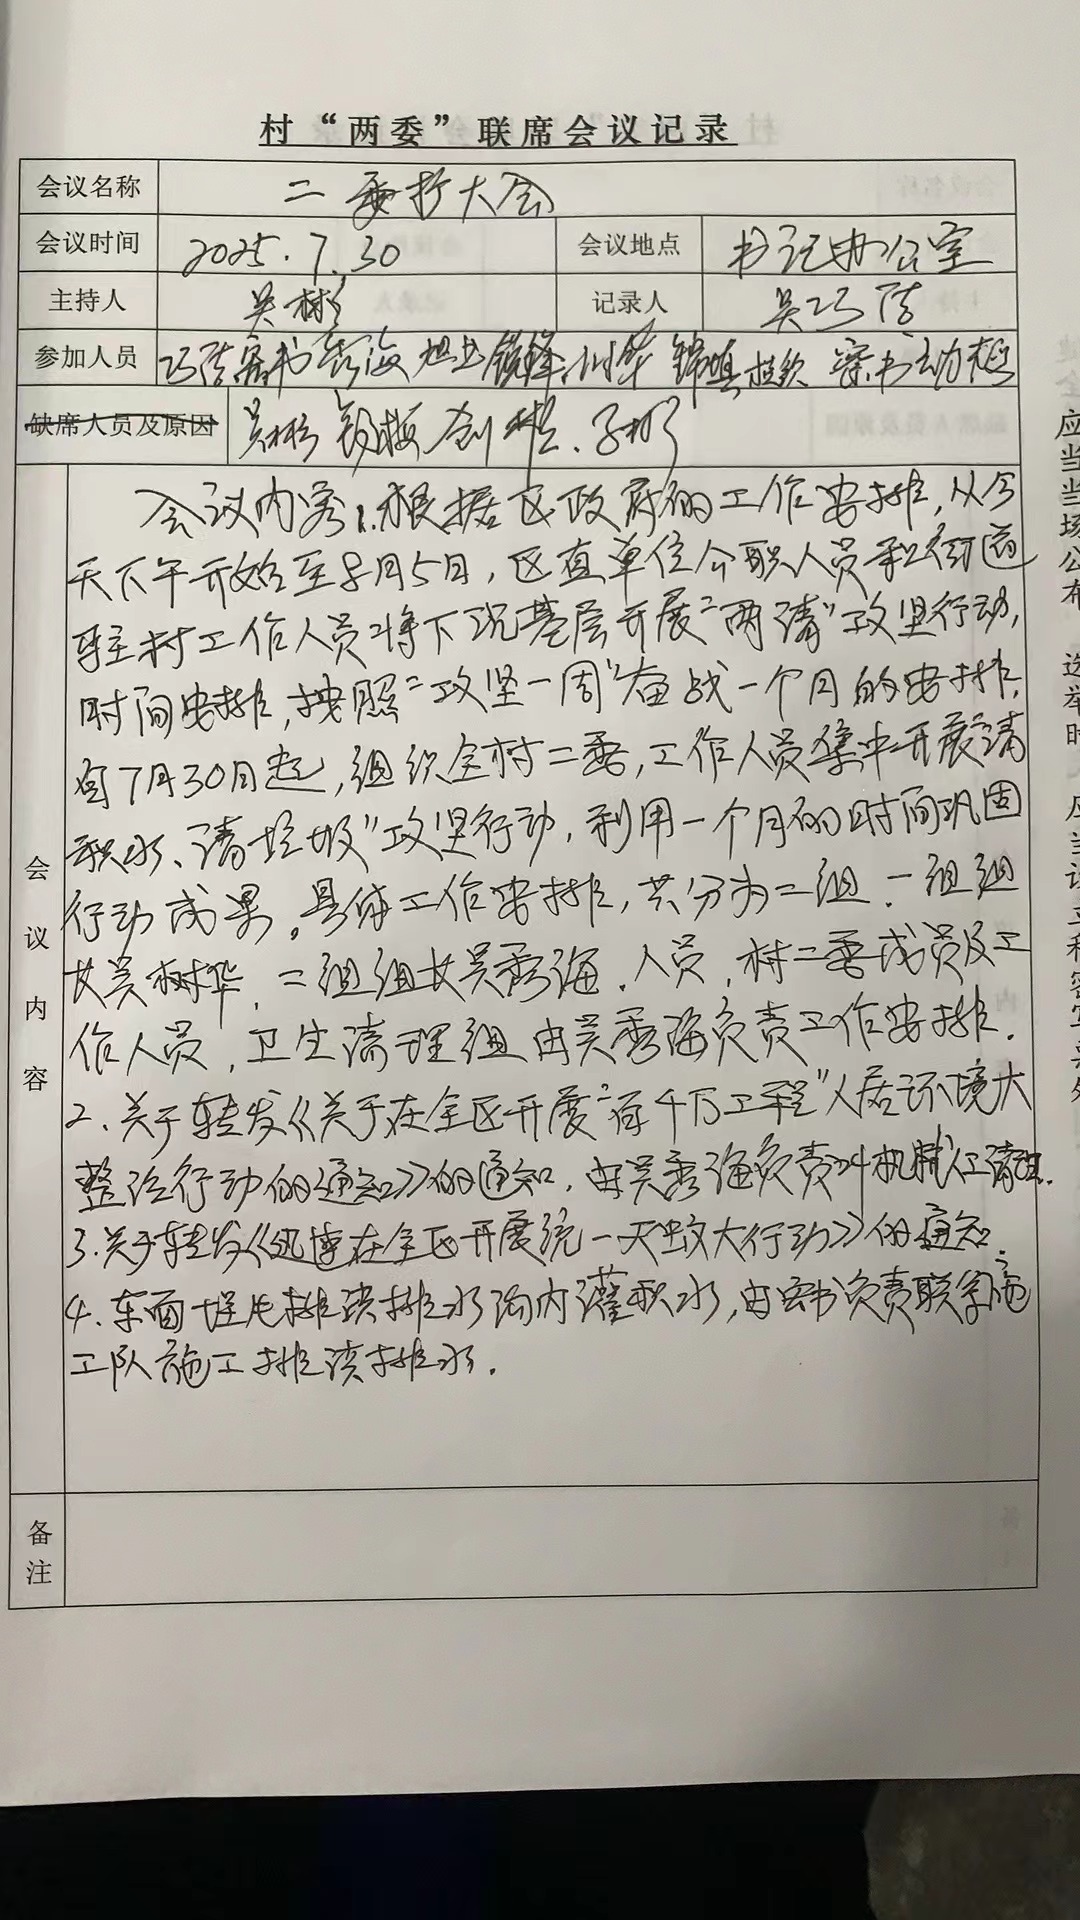 村“两委”联席会议记录
会议名称 二委扩大会
会议时间 2025.7.30 会议地点 书记办公室
主持人 吴彬 记录人 吴巧
参加人员 秀海 旭 锐锋 树华 锦
缺席人员及原因 吴彬
会议内容
会议内容1.根据区政府的工作安排，从今
天下午开始至8月5日，区直单位公职人员和街道
驻村工作人员将下沉基层开展“两清”攻坚行动，
时间安排，按照“攻坚一周”奋战一个月的安排，
自7月30日起，组织全村二委，工作人员集中开展“清
积水、清垃圾”攻坚行动，利用一个月的时间巩固
行动成果。具体工作安排，共分为二组．一组组
长吴树华，二组组长吴秀海．人员，村二委成员及工
作人员，卫生清理组由吴秀海负责工作安排．
2、关于转发《关于在全区开展“百千万工程”人居环境大
整治行动的通知》的通知，由吴秀海负责叫机械人工清理．
3.关于转发《在全区开展统一灭蚊大行动》的通知
4．东面排水沟内积水，由负责联系施
工队施工排水．
备注
应当当场公布
选举时